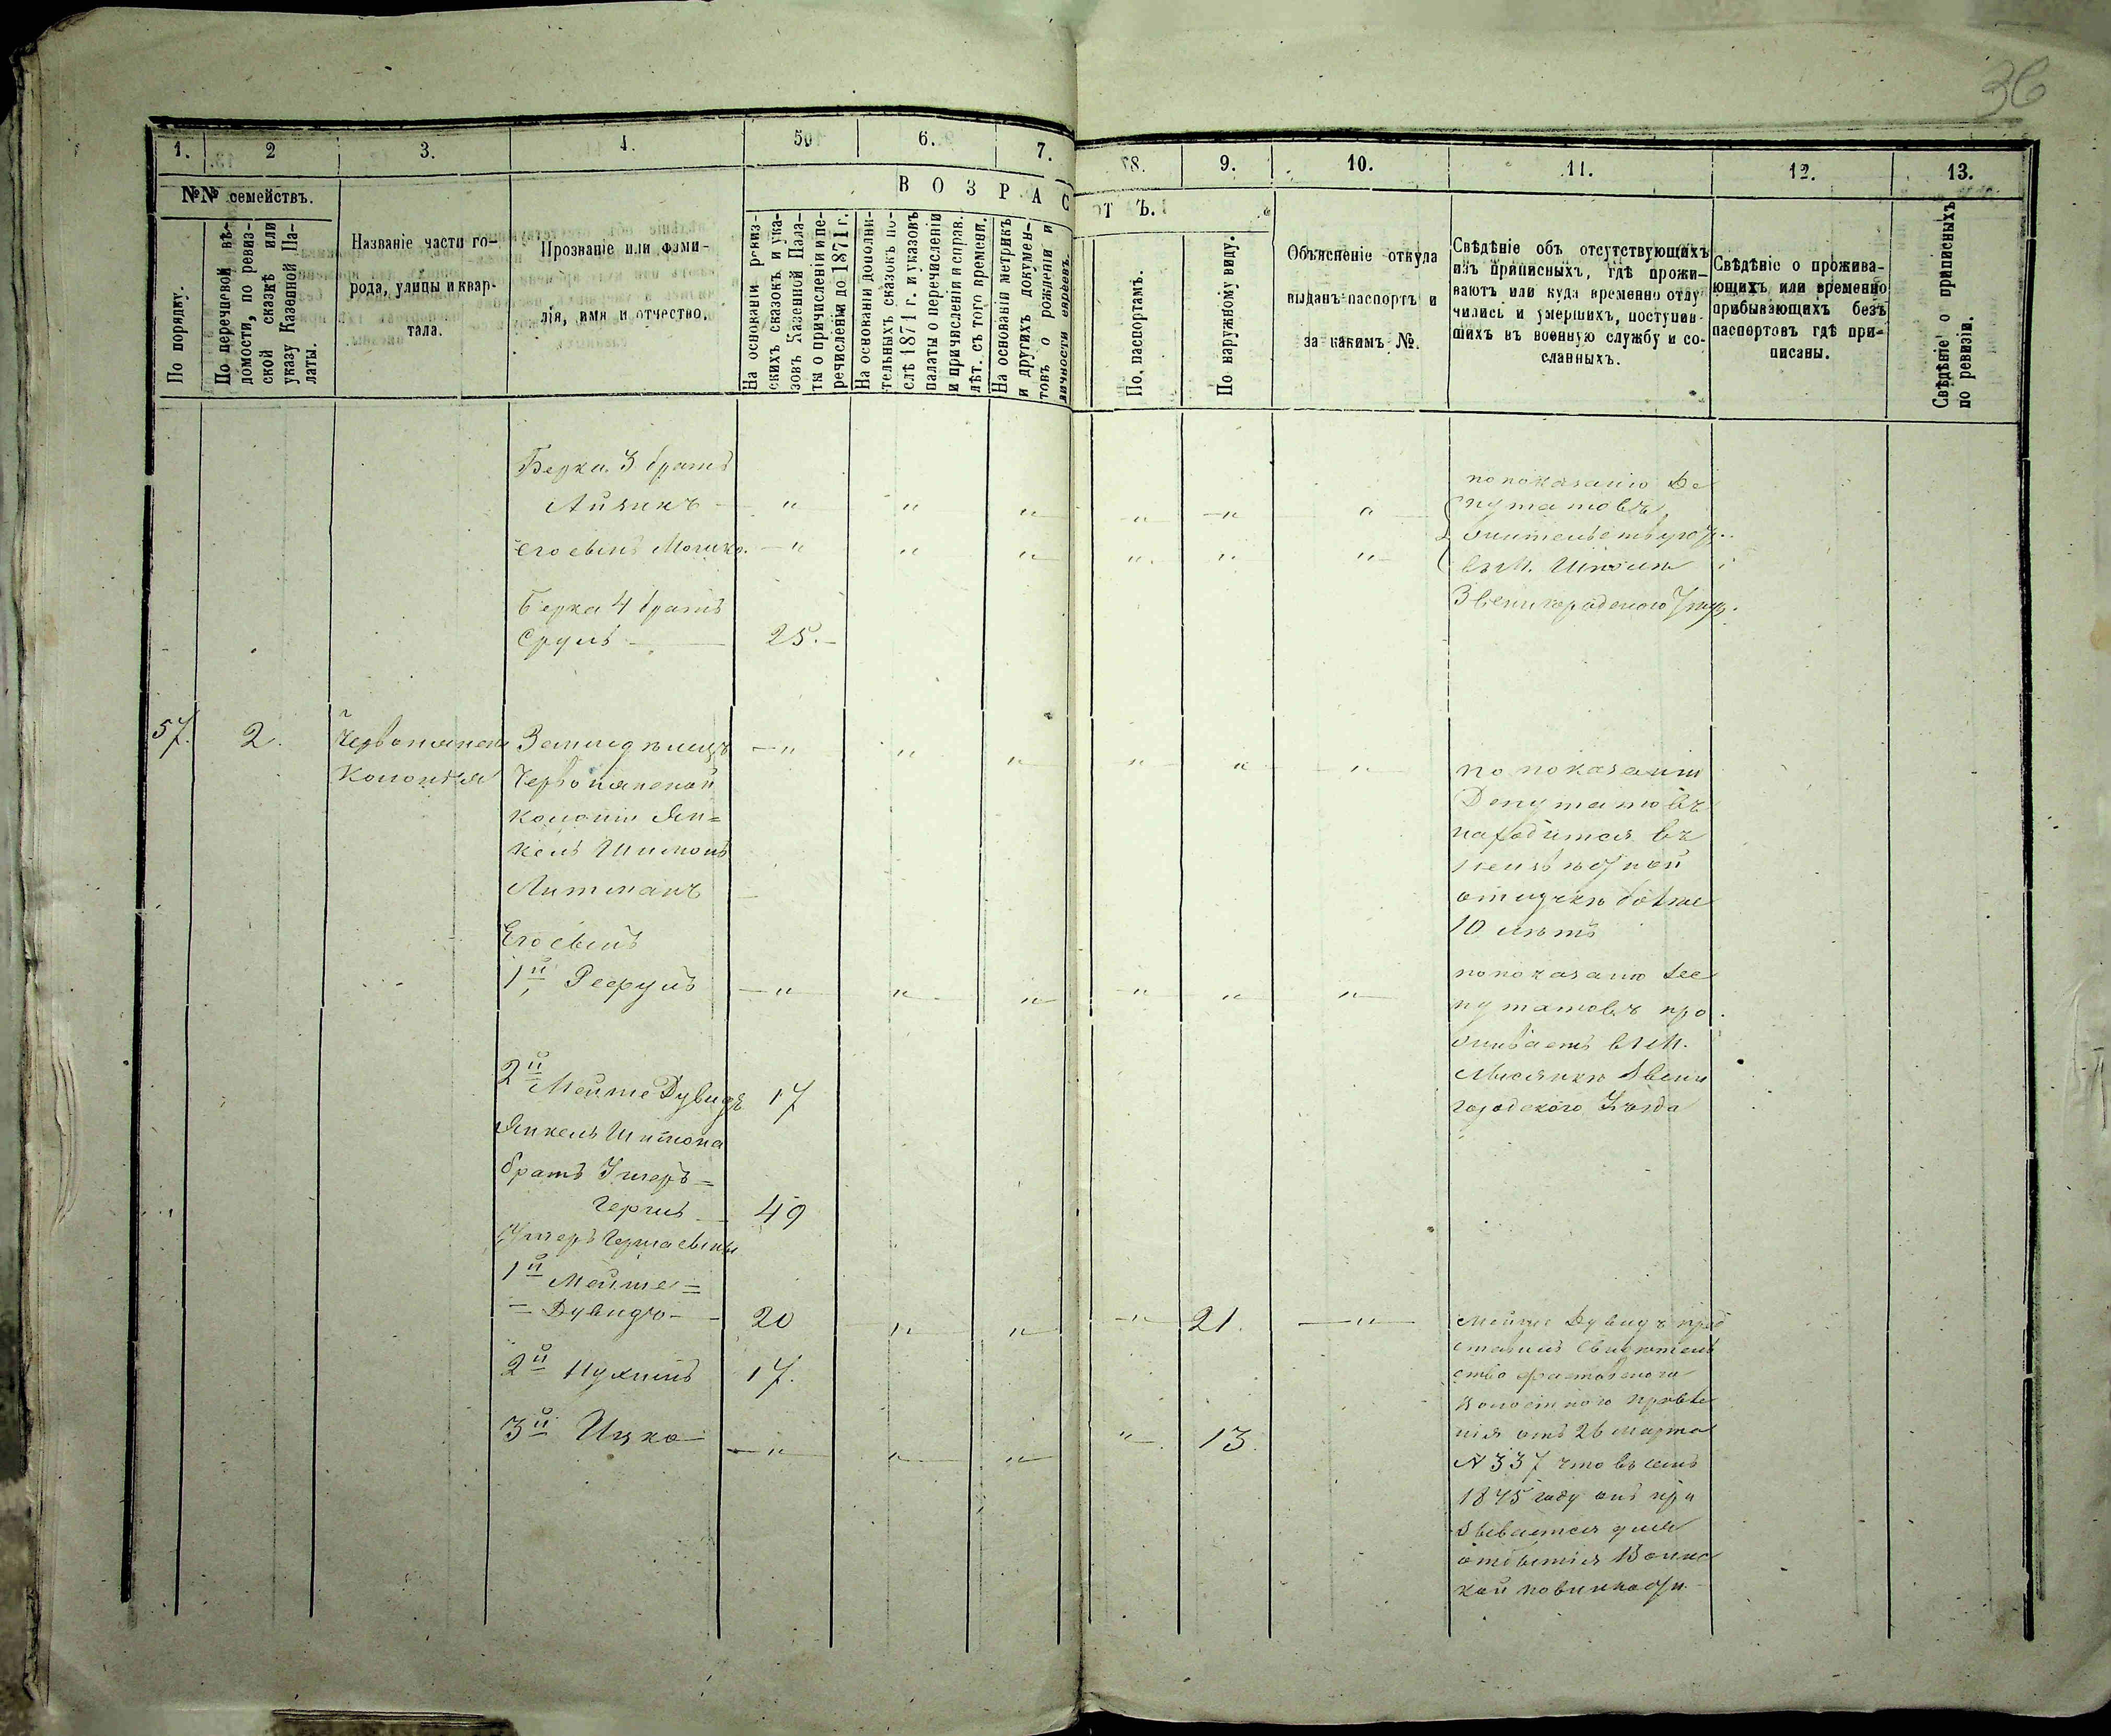 36
1. 2 3. 4. 5 6. 7. 8. 9. 10. 11. 12. 13.
№№ семействъ.
В О З Р А С Т Ъ.
По порядку.
По перечневой вѣ-
домости, по ревиз-
ской сказкѣ или
указу Казенной Па-
латы.
Названіе части го-
рода, улицы и квар-
тала.
Прозваніе или фами-
лія, имя и отчество.
На основаніи ревиз-
скихъ сказокъ и ука-
зовъ Казенной Пала-
ты о причисленіи и пе-
речисленіи до 1871 г.
На основаніи дополни-
тельныхъ сказокъ по-
слѣ 1871 г. и указовъ
палаты о перечисленіи
и причисленіи и справ.
лѣт. съ того времени.
На основаніи метрикъ
и другихъ докумен-
товъ о рожденіи и
личности евреевъ.
По паспортамъ.
По наружному виду.
Объясненіе откуда
выданъ паспортъ и
за какимъ №.
Свѣдѣніе объ отсутствующихъ
изъ приписныхъ, гдѣ прожи-
ваютъ или куда временно отлу
чились и умершихъ, поступив-
шихъ въ военную службу и со-
сланныхъ.
Свѣдѣніе о прожива-
ющихъ или временно
прибывающихъ безъ
паспортовъ гдѣ при-
писаны.
Свѣдѣніе о приписныхъ
по ревизіи.
Берка 3 братъ
Айзикъ — " " " " " "
его сынъ Мошко. — " " " " " "
по показанію Де
путатовъ
жительствуют.
въ м. Шполѣ
Звенигородского Уѣзд.
Берка 4 братъ
Сруль — 25.
57. 2.
Червонянск
Колонія
Земледѣлецъ — " " " " " "
Червонянской
колоніи Ян=
кель Шимонъ
Литманъ
по показанію
Депутатовъ
находится въ
неизвѣстной
отлучкѣ более
10 лѣтъ
Его сынъ
1й Рефулъ — " " " " " "
по показанію Де
путатовъ про
живаетъ въ м.
Лысянкѣ Звени
городского Уѣзда
2й Мейше Дувидъ 17
Янкель Шимона
братъ Ушеръ=
Гершъ — 49
Ушеръ Герша сыны
1й Мейше=
= Дувидъ — 20 " " " 21. "
2й Нухимъ 17.
3й Ицко — " " " " 13.
Мейше Дувидъ пред
ставилъ свидѣтель
ство
Волостного Правле
нія отъ 26 Марта
N 337 что въ семъ
1875 году онъ при
зывается для
отбытія Воинс
кой повинности.